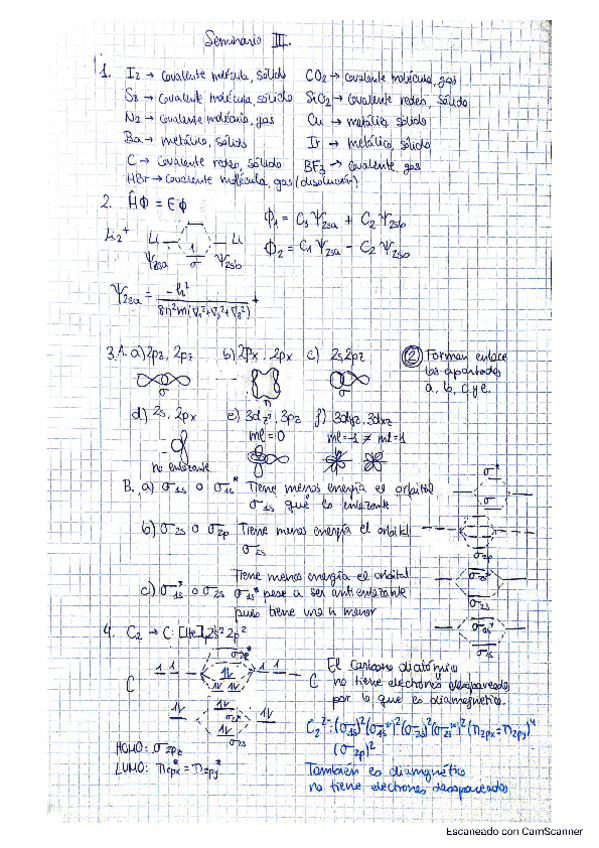 Seminario III.
1. I2 → Covalente molécula, sólido
CO2 → covalente molécula, gas
S8 → covalente molécula, sólido
SiO2 → covalente redes, sólido
N2 → covalente molécula, gas
Cu → metálico sólido
Ba → metálico, sólido
Ir → metálico, sólido
C → Covalente redes, sólido
BF3 → Covalente, gas
HBr → covalente molécula, gas (disolución)
2. ĤΦ = EΦ
Φ1 = C1 Ψ2sa + C2 Ψ2sb
Li2+ Li Li
Ψ2sa σ Ψ2sb
Φ2 = C1 Ψ2sa − C2 Ψ2sb
Ψ2sa =
3.A. a) 2pz, 2pz b) 2px, 2px c) 2s, 2pz
② Forman enlace
los apartados
a, b, c y e.
σ π σ
d) 2s, 2px e) 3dz², 3pz f) 3dyz, 3dxz
ml=0 ml=-1 ≠ ml=1
no enlazante
B. a) σ1s o σ1s* Tiene menos energía el orbital
σ1s que es enlazante
b) σ2s o σ2p Tiene menos energía el orbital
σ2s
c) σ1s* o σ2s Tiene menos energía el orbital
σ1s* pese a ser antienlazante
pues tiene una n menor
σ*
σ
σ2p
σ2s*
σ2s
σ1s*
σ1s
4. C2 → C: [He] 2s² 2p²
C C
σ2s*
σ2s
El carbono diatómico
no tiene electrones desapareados
por lo que es diamagnético.
HOMO: σ2pz
LUMO: π2px* = π2py*
C2²⁻: (σ1s)²(σ1s*)²(σ2s)²(σ2s*)²(π2px = π2py)⁴
(σ2p)²
También es diamagnético
no tiene electrones desapareados
Escaneado con CamScanner